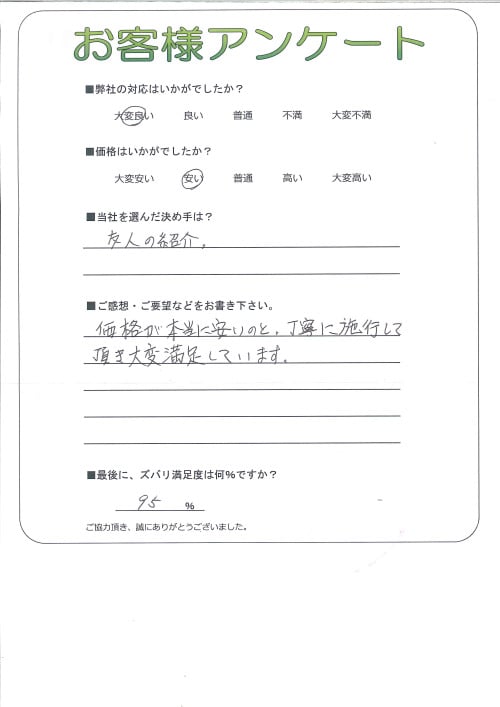 お客様アンケート
■弊社の対応はいかがでしたか？
大変良い 良い 普通 不満 大変不満
■価格はいかがでしたか？
大変安い 安い 普通 高い 大変高い
■当社を選んだ決め手は？
友人の紹介,
■ご感想・ご要望などをお書き下さい。
価格が本当に安いのと、丁寧に施行して
頂き大変満足しています.
■最後に、ズバリ満足度は何％ですか？
95 %
ご協力頂き、誠にありがとうございました。